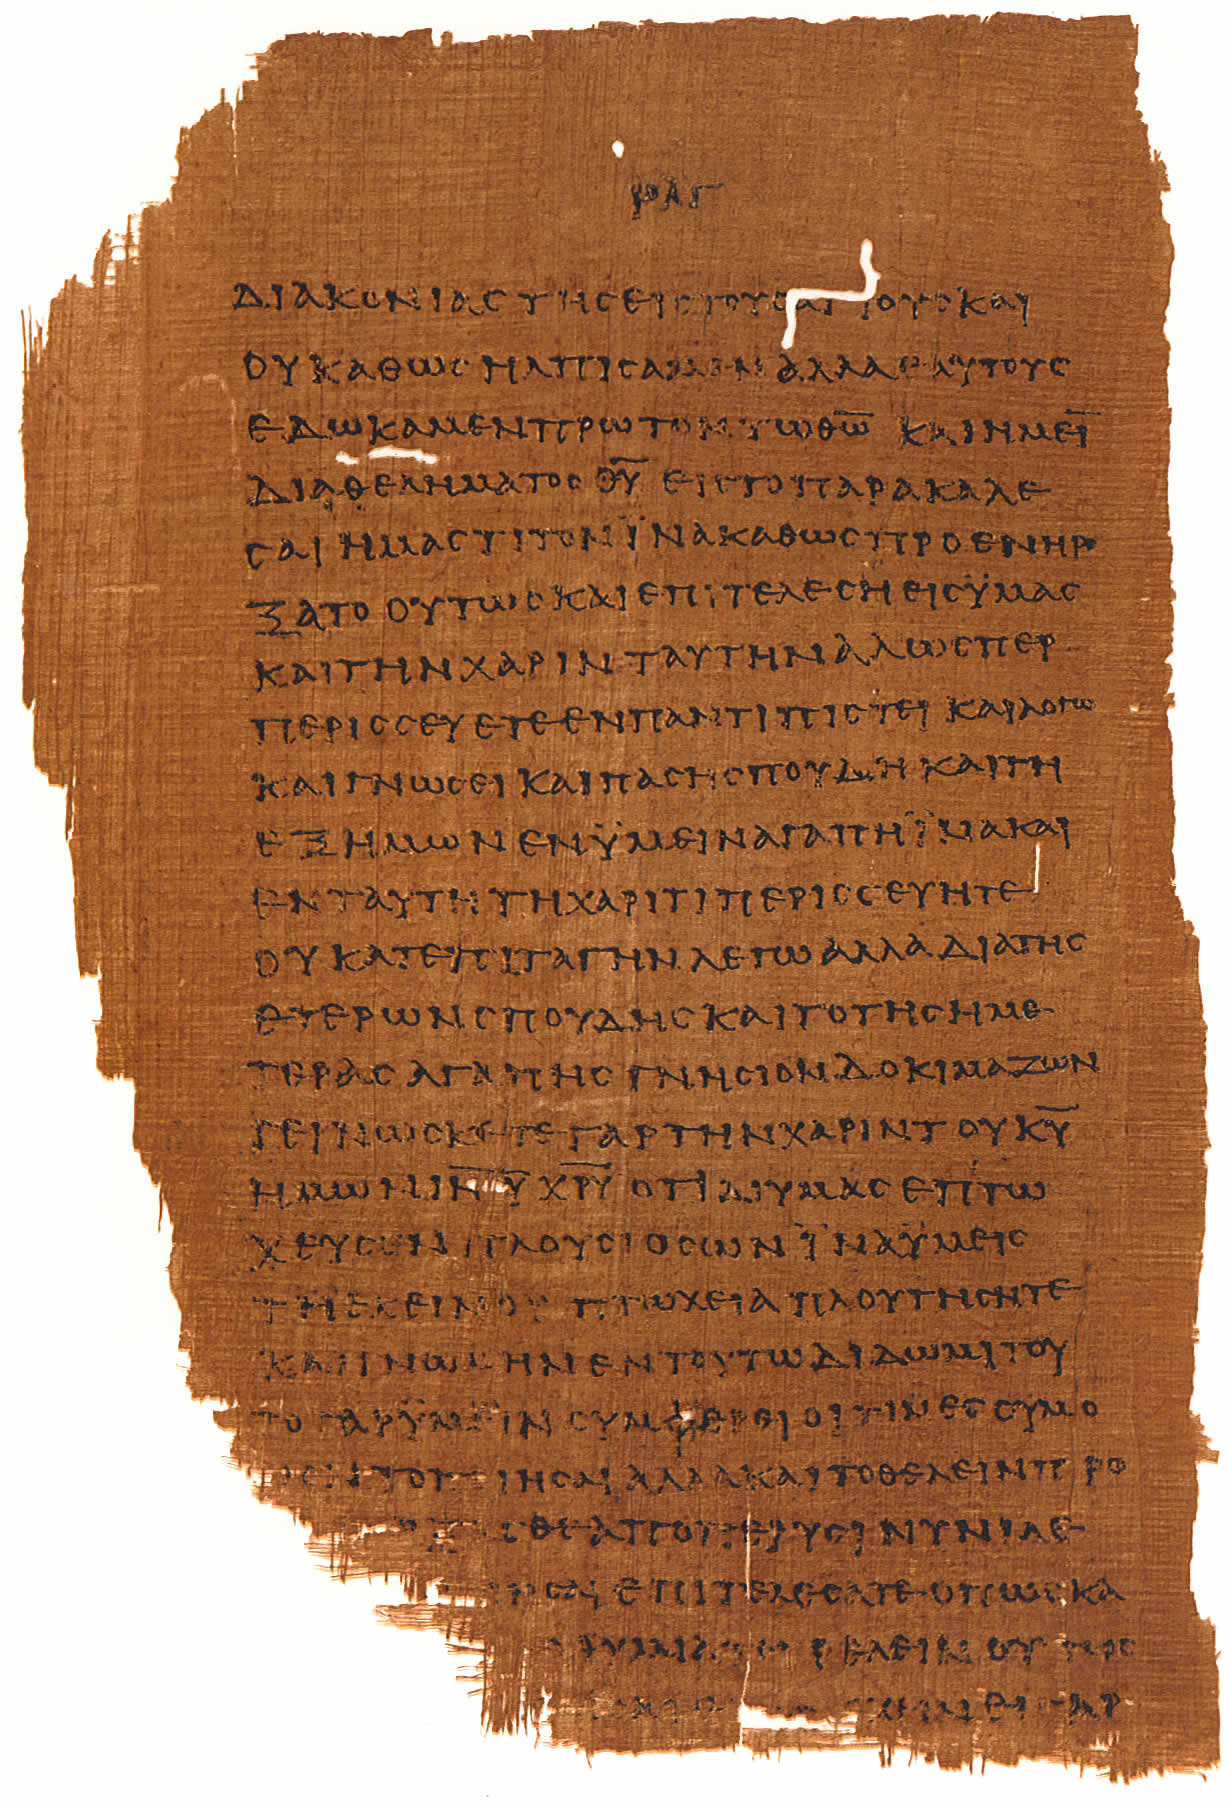 ΡΛΓ
ΔΙΑΚΟΝΙΑΣ ΤΗΣ ΕΙΣ ΤΟΥΣ ΑΓΙΟΥΣ ΚΑΙ
ΟΥ ΚΑΘΩΣ ΗΛΠΙΣΑΜΕΝ ΑΛΛΑ ΕΑΥΤΟΥΣ
ΕΔΩΚΑΜΕΝ ΠΡΩΤΟΝ ΤΩ Θ̅Ω̅ ΚΑΙ ΗΜΕΙ̅
ΔΙΑ ΘΕΛΗΜΑΤΟΣ Θ̅Υ̅ ΕΙΣ ΤΟ ΠΑΡΑΚΑΛΕ
ΣΑΙ ΗΜΑΣ ΤΙΤΟΝ ΪΝΑ ΚΑΘΩΣ ΠΡΟΕΝΗΡ
ΞΑΤΟ ΟΥΤΩΣ ΚΑΙ ΕΠΙΤΕΛΕΣΗ ΕΙΣ ΫΜΑΣ
ΚΑΙ ΤΗΝ ΧΑΡΙΝ ΤΑΥΤΗΝ ΑΛΛ ΩΣΠΕΡ
ΠΕΡΙΣΣΕΥΕΤΕ ΕΝ ΠΑΝΤΙ ΠΙΣΤΕΙ ΚΑΙ ΛΟΓΩ
ΚΑΙ ΓΝΩΣΕΙ ΚΑΙ ΠΑΣΗ ΣΠΟΥΔΗ ΚΑΙ ΤΗ
ΕΞ ΗΜΩΝ ΕΝ ΫΜΕΙΝ ΑΓΑΠΗ ΪΝΑ ΚΑΙ
ΕΝ ΤΑΥΤΗ ΤΗ ΧΑΡΙΤΙ ΠΕΡΙΣΣΕΥΗΤΕ
ΟΥ ΚΑΤ ΕΠΙΤΑΓΗΝ ΛΕΓΩ ΑΛΛΑ ΔΙΑ ΤΗΣ
ΕΤΕΡΩΝ ΣΠΟΥΔΗΣ ΚΑΙ ΤΟ ΤΗΣ ΗΜΕ
ΤΕΡΑΣ ΑΓΑΠΗΣ ΓΝΗΣΙΟΝ ΔΟΚΙΜΑΖΩΝ
ΓΕΙΝΩΣΚΕΤΕ ΓΑΡ ΤΗΝ ΧΑΡΙΝ ΤΟΥ Κ̅Υ̅
ΗΜΩΝ Ι̅Η̅Υ̅ Χ̅Ρ̅Υ̅ ΟΤΙ ΔΙ ΥΜΑΣ ΕΠΤΩ
ΧΕΥΣΕΝ ΠΛΟΥΣΙΟΣ ΩΝ ΪΝΑ ΫΜΕΙΣ
ΤΗ ΕΚΕΙΝΟΥ ΠΤΩΧΕΙΑ ΠΛΟΥΤΗΣΗΤΕ
ΚΑΙ ΓΝΩΜΗΝ ΕΝ ΤΟΥΤΩ ΔΙΔΩΜΙ ΤΟΥ
ΤΟ ΓΑΡ ΫΜΕΙΝ ΣΥΜΦΕΡΕΙ ΟΙΤΙΝΕΣ ΟΥ ΜΟ
ΠΟΙΗΣΑΙ ΑΛΛΑ ΚΑΙ ΤΟ ΘΕΛΕΙΝ ΠΡΟ
ΝΥΝΙ ΔΕ
ΕΠΙΤΕΛΕΣΑΤΕ ΟΠΩΣ ΚΑ
ΘΕΛΕΙΝ ΟΥΤΩΣ
ΓΑΡ